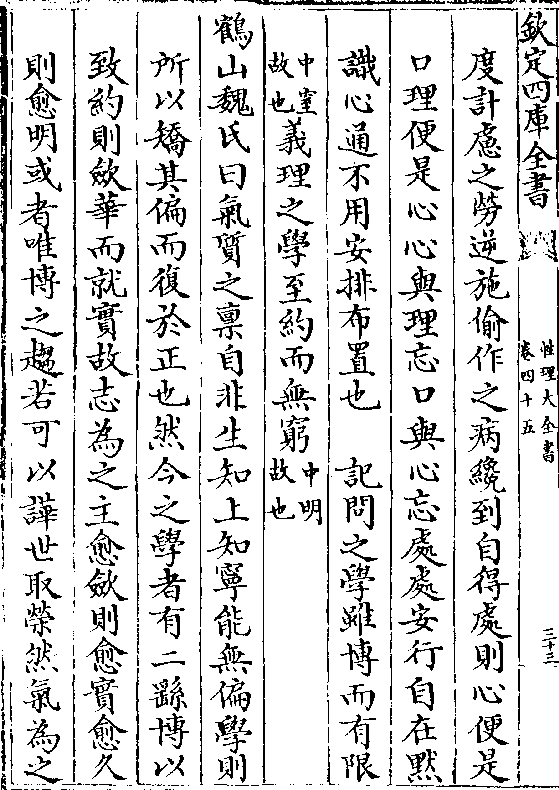 欽定四庫全書
性理大全書
卷四十五
三十三
度計慮之勞逆施偷作之病纔到自得處則心便是
口理便是心心與理忘口與心忘處處安行自在默
識心通不用安排布置也　記問之學雖博而有限
中窒
故也
義理之學至約而無窮
中明
故也
鶴山魏氏曰氣質之禀自非生知上知寧能無偏學則
所以矯其偏而復於正也然今之學者有二繇博以
致約則歛華而就實故志為之主愈歛則愈實愈久
則愈明或者唯博之趨若可以譁世取榮然氣為之